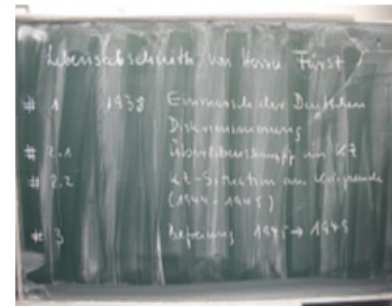 Lebensabschnitte von Herrn Fürst
# 1 1938 Einmarsch der Deutschen
Diskriminierung
# 2.1 Überlebenskampf im KZ
# 2.2 KZ-Situation am Kriegsende
(1944-1945)
# 3 Befreiung 1945 → 1949